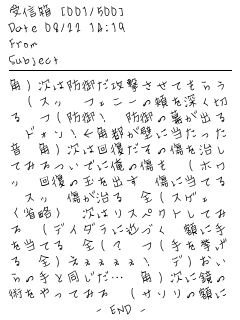 受信箱 [001/500]
Date 08/22 14:19
From
Subject
角）次は防御だ攻撃させてもらう
（スッ フェニーの頬を深く切
る つ（防御！ 防御の幕が出る
ドォン！←角都が壁に当たった
音 角）次は回復だその傷を治し
てみろついでに俺の傷を （ホワ
ッ 回復の玉を出す 傷に当てる
スッ 傷が治る 全（スゲェ
（省略） 次はリスペクトしてみ
る （デイダラに近づく 額に手
を当てる 全（て つ（手を挙げ
る 全）えぇぇぇ！ デ）おい
らの手と同じだ… 角）次に鏡の
術をやってみろ （サソリの額に
- END -